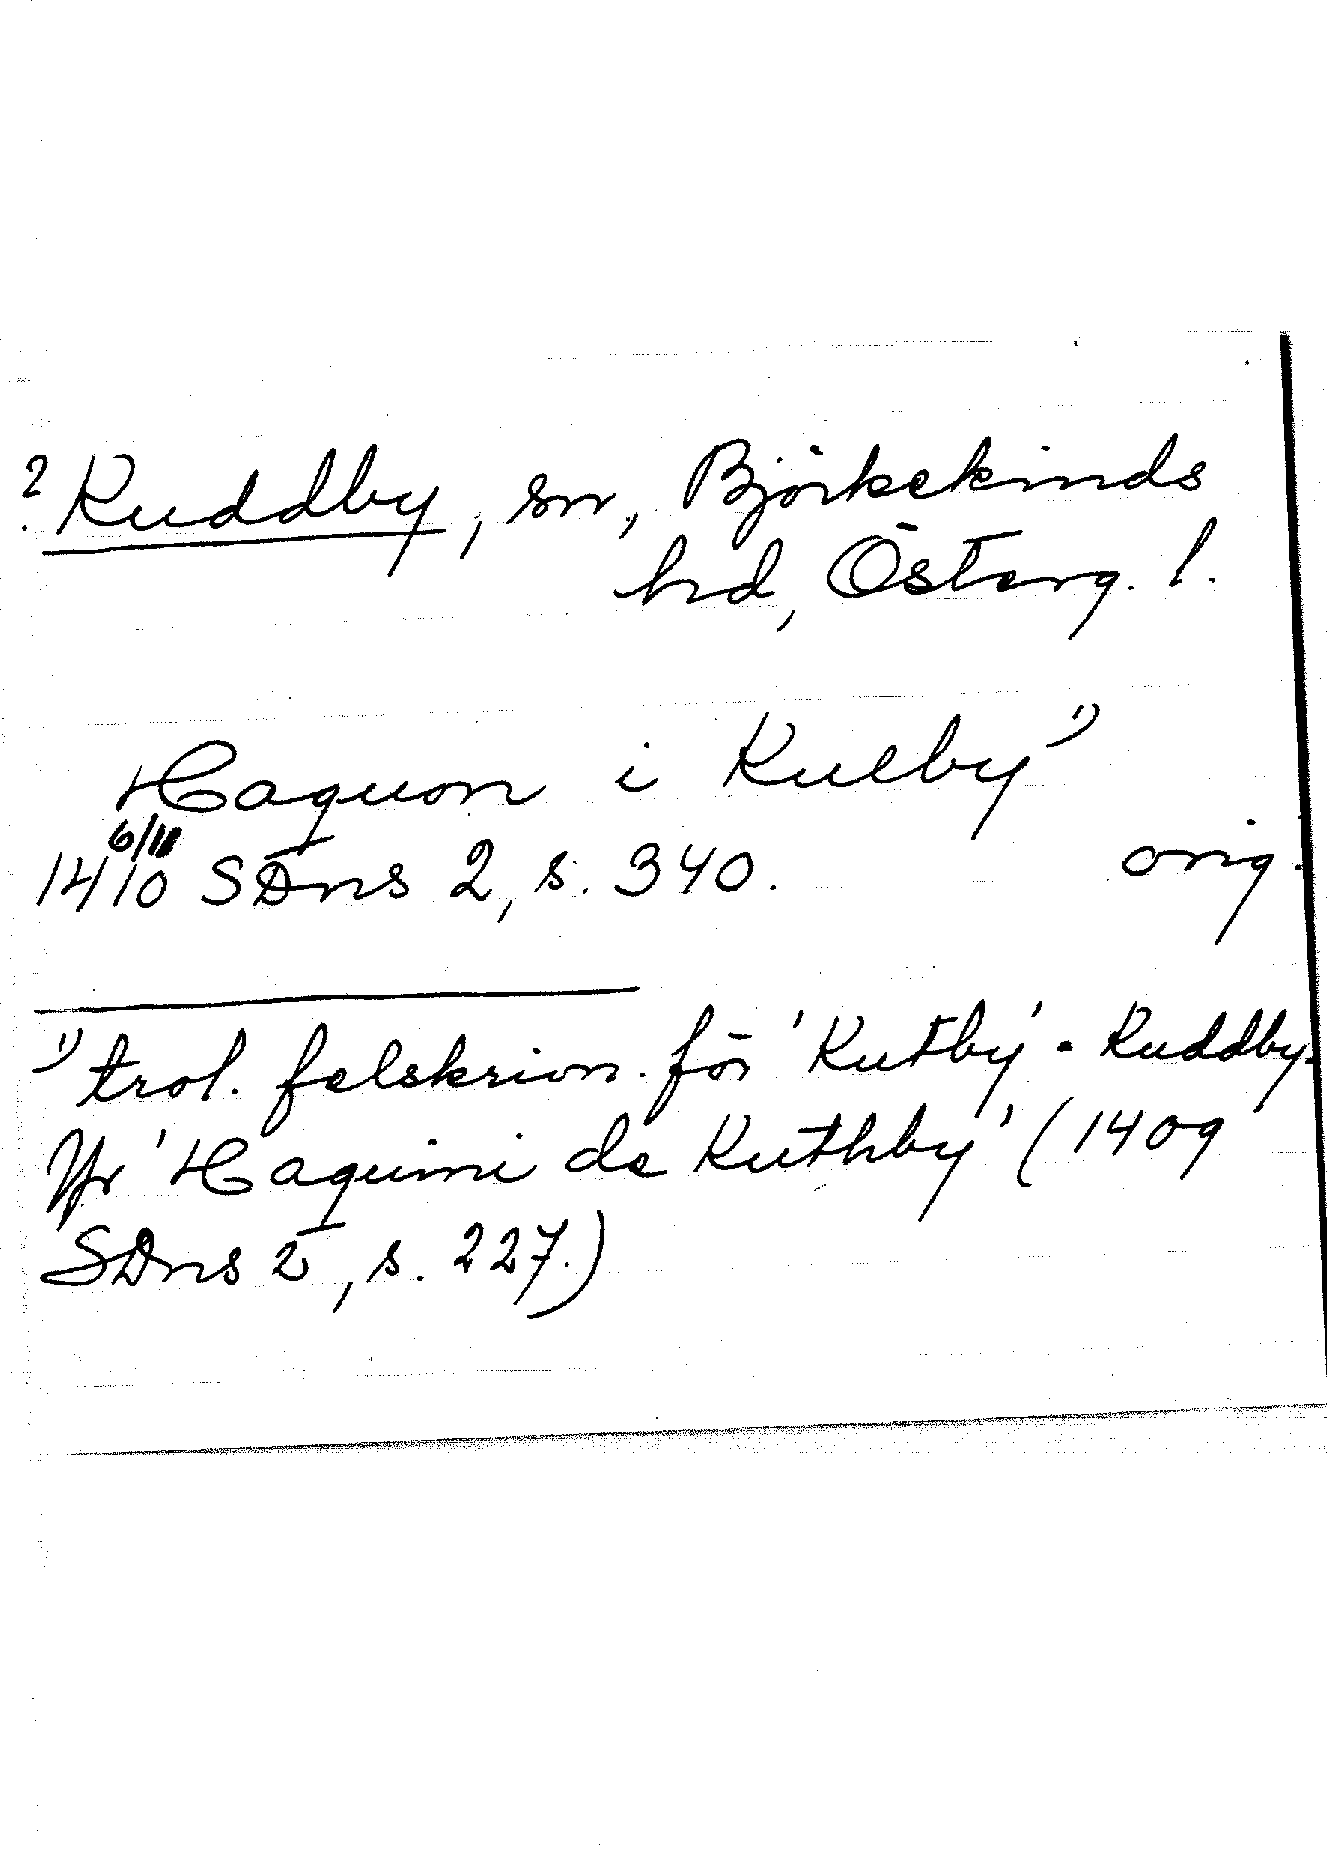 ? Ruddby, sn, Björkekinds
hd, Österg. l.
Haquon i Rulby 1)
6/11
1410 SDns 2, s. 340. orig.
1) trol. felskrivn. för 'Rutby' - Ruddby.
Jfr 'Haquini de Ruthby' (1409
SDns 2, s. 227.)